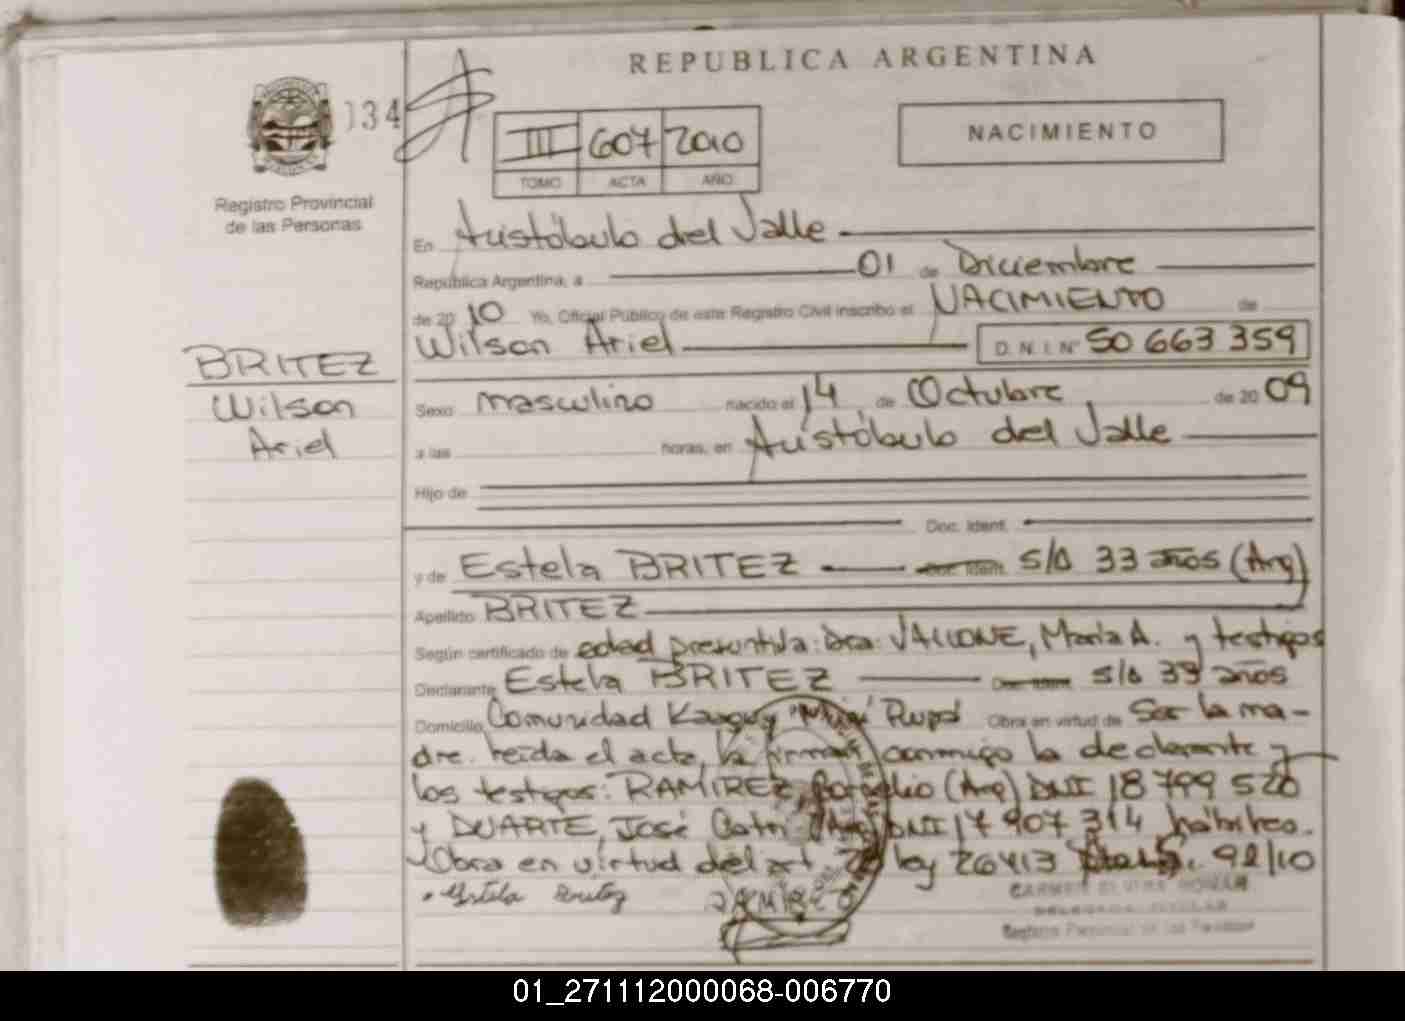 REPUBLICA ARGENTINA
134
III 607 2010
TOMO ACTA AÑO
NACIMIENTO
Registro Provincial
de las Personas
En Aristóbulo del Valle
República Argentina, a 01 de Diciembre
de 2010 Yo, Oficial Público de este Registro Civil inscribo el NACIMIENTO de
Wilson Ariel D. N. I. Nº 50 663 359
BRITEZ
Wilson
Ariel
Sexo masculino nacido el 14 de Octubre de 2009
a las horas, en Aristóbulo del Valle
Hijo de
Doc. Ident.
y de Estela BRITEZ Doc. Ident. s/d 33 años (Arg)
Apellido BRITEZ
Según certificado de edad presuntiva: Dra: VALLONE, María A. y testigos
Declarante Estela BRITEZ Doc. Ident. s/d 33 años
Domicilio Comunidad Kaaguy Mirí Rupá Obra en virtud de Ser la ma-
dre. leída el acta, la firman conmigo la declarante y
los testigos: RAMIREZ, (Arg) DNI 18 799 520
y DUARTE, José DNI 17 907 314, hábiles.
Obra en virtud del art. ley 26413 92/10
Estela Britez
RAMIREZ
CARMEN ELVIRA
DELEGADA TITULAR
Registro Provincial de las Personas
01_271112000068-006770